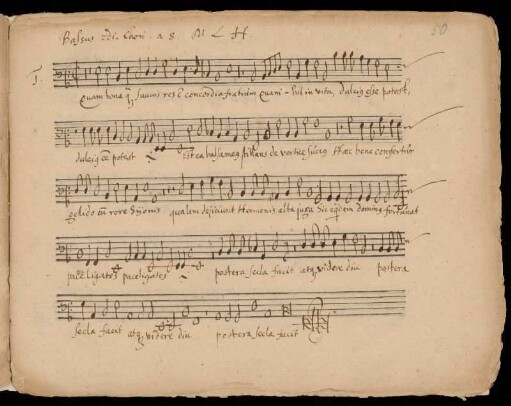 Bassus 2di. Chori. a 8. M L H.
50
1.
Quam bona q̃ suavis res ẽ concordia fratrum Quam nihil in vita, dulcig esse potest,
dulcig ẽe potest Est ea balsameg stillans de vertice succg Haec bene confertur
gelido cũ rore Syonis qualem dejiciunt Hermonis alta juga Sic eqdem domins fortunat
pace ligatos pace ligatos postera secla faciet atq, videre diu postera
secla faciet atq, videre diu postera secla faciet